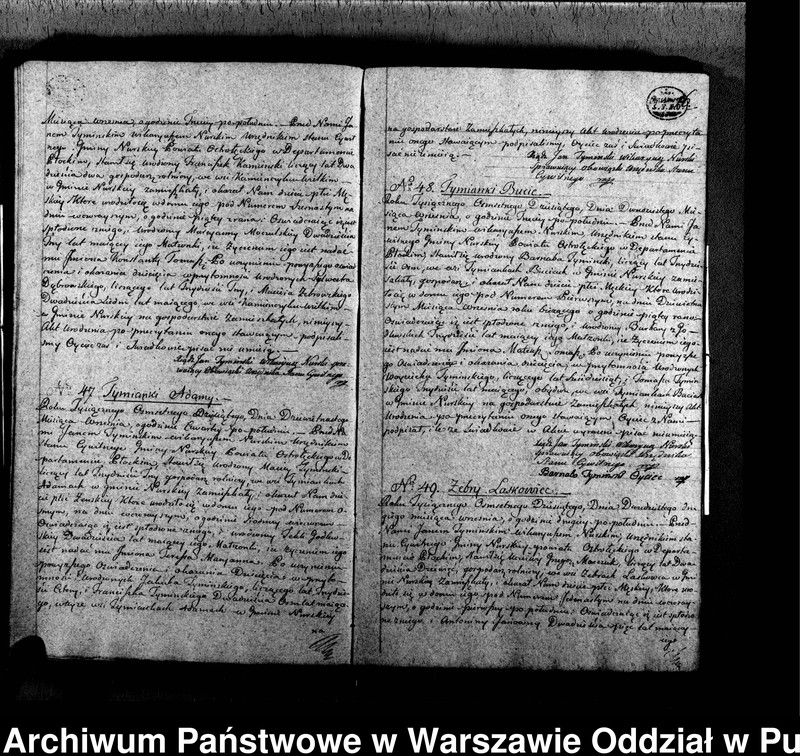 Miesiąca września, o godzinie Trzeciey po południu. Przed Nami Ja-
nem Tymińskim Wikaryuszem Nurskim Urzędnikiem stanu Cywil-
nego Gminy Nurskiey Powiatu Ostrołęckiego w Departamencie
Płockim, stawił się Urodzony Franciszek Kamieński liczący lat Dwa-
dzieścia dwa, gospodarz rolniczy, we wsi Kamieńczyku Wielkim
w Gminie Nurskiey zamieszkały, i okazał Nam dziecię płci Mę-
skiey, które urodziło się w domu iego pod Numerem
na dniu wczorayszym, o godzinie piątey zrana. Oświadczaiąc iż iest
spłodzone z niego, i Urodzoney Maryanny Dwadzieścia
Trzy lat maiącey iego Małżonki, iż życzeniem iego iest nadać
mu Imiona Konstanty Tomasz. Po uczynieniu powyższego oświad-
czenia i okazania dziecięcia w przytomności Urodzonych Sylwestra
Dąbrowskiego, liczącego lat Trzydzieści Trzy, i Macieja Żebrowskiego
Dwadzieścia Siedm lat maiącego, we wsi Kamieńczyku Wielkim
w Gminie Nurskiey na gospodarstwie Zamieszkałych, ninieyszy
Akt Urodzenia po przeczytaniu onego stawaiącym, podpisali-
śmy Oyciec zaś i Świadkowie pisać nie umieią.
Xiądz Jan Tymiński Wikaryusz Nurski spra-
wuiący Obowiązek Urzędnika Stanu Cywilnego
47. Tymianki Adamy.
Roku Tysiącznego Ośmsetnego Dziesiątego, Dnia Dziewiętnastego
Miesiąca Września, o godzinie Czwartey po południu. Przed Na-
mi Janem Tymińskim Wikaryuszem Nurskim Urzędnikiem
Stanu Cywilnego Gminy Nurskiey Powiatu Ostrołęckiego w De-
partamencie Płockim, stawił się Urodzony Maciey Tymiński
liczący lat Trzydzieści Trzy, gospodarz rolniczy, we wsi Tymiankach
Adamach w gminie Nurskiey zamieszkały, i okazał Nam dzie-
cię płci Żeńskiey które urodziło się w domu iego pod Numerem O-
smym, na dniu wczorayszym, o godzinie
Oświadczaiąc iż iest spłodzone z niego, i Urodzoney Tekli Godlew-
skiey Dwadzieścia lat maiącey iego Małżonki, iż życzeniem iego
iest nadać mu Imiona Teressa Maryanna. Po uczynieniu
powyższego Oświadczenia i okazaniu Dziecięcia w przyto-
mności Urodzonych Jakuba Tymińskiego, liczącego lat Trzydzie-
ści Cztery, i Franciszka Tymińskiego Dwadzieścia Ośm lat maiące-
go, w teyże wsi Tymiankach Adamach w Gminie Nurskiey
na
na gospodarstwie Zamieszkałych, ninieyszy Akt Urodzenia po przeczyta-
niu onego Stawaiącym podpisaliśmy, Oyciec zaś i Świadkowie pi-
sać nie umieią.
Xiądz Jan Tymiński Wikaryusz Nurski
Sprawuiący obowiązek Urzędnika Stanu
Cywilnego
No. 48. Tymianki Bucie.
Roku Tysiącznego Ośmsetnego Dziesiątego, Dnia Dwudziestego Mie-
siąca Września, o godzinie Trzeciey po południu. Przed Nami Ja-
nem Tymińskim Wikaryuszem Nurskim, Urzędnikiem stanu Cy-
wilnego Gminy Nurskiey Powiatu Ostrołęckiego w Departamencie
Płockim, stawił się Urodzony Barnaba Tymiński, liczący lat Trzydzie-
ści Ośm, we wsi Tymiankach Buciach w Gminie Nurskiey zamie-
szkały, gospodarz, i okazał Nam dziecię płci Męskiey, które urodzi-
ło się w domu iego pod Numerem Pierwszym, na dniu Dziewiętna-
stym Miesiąca Września roku bieżącego o godzinie piątey rano
Oświadczaiąc iż iest spłodzone z niego, i Urodzoney Barbary z Go-
dlewskich Trzydzieści lat maiącey iego Małżonki, iż życzeniem iego
iest nadać mu Imiona Mateusz Tomasz. Po uczynieniu powyższe-
go Oświadczenia i okazania dziecięcia w przytomności Urodzonych
Woyciecha Tymińskiego, liczącego lat i Tomasza Tymiń-
skiego Trzydzieści lat maiącego, obydwa we wsi Tymiankach Buciach
w Gminie Nurskiey na gospodarstwie Zamieszkałych ninieyszy Akt
Urodzenia po przeczytaniu onego stawaiącym Oyciec z Nami
podpisał, iż zaś Świadkowie w Akcie wyrażeni pisać nie umieią.
Xiądz Jan Tymiński Wikaryusz Nurski
sprawuiący obowiązek Urzędnika
Stanu Cywilnego
Barnaba Tyminski Oyciec
No. 49. Żebry Laskowiec.
Roku Tysiącznego Ośmsetnego Dziesiątego, Dnia Dwudziestego dru-
giego miesiąca września, o godzinie drugiey po południu. Przed
Nami Janem Tymińskim Wikaryuszem Nurskim, Urzędnikiem sta-
nu Cywilnego Gminy Nurskiey powiatu Ostrołęckiego w Departa-
mencie Płockim, Stawił się liczący lat Dwa-
dzieścia Dziewięć, gospodarz rolniczy, we wsi Żebrach Laskowcu w Gmi-
nie Nurskiey Zamieszkały, i okazał Nam dziecię płci Męskiey, które uro-
dziło się w domu iego pod Numerem Jedenastym na dniu wczoray-
szym, o godzinie po południu. Oświadczaiąc iż iest spłodzo-
ne z niego, i Antoniny Dwadzieścia Pięć lat maiącey
iego
Archiwum Państwowe w Warszawie Oddział w Pu